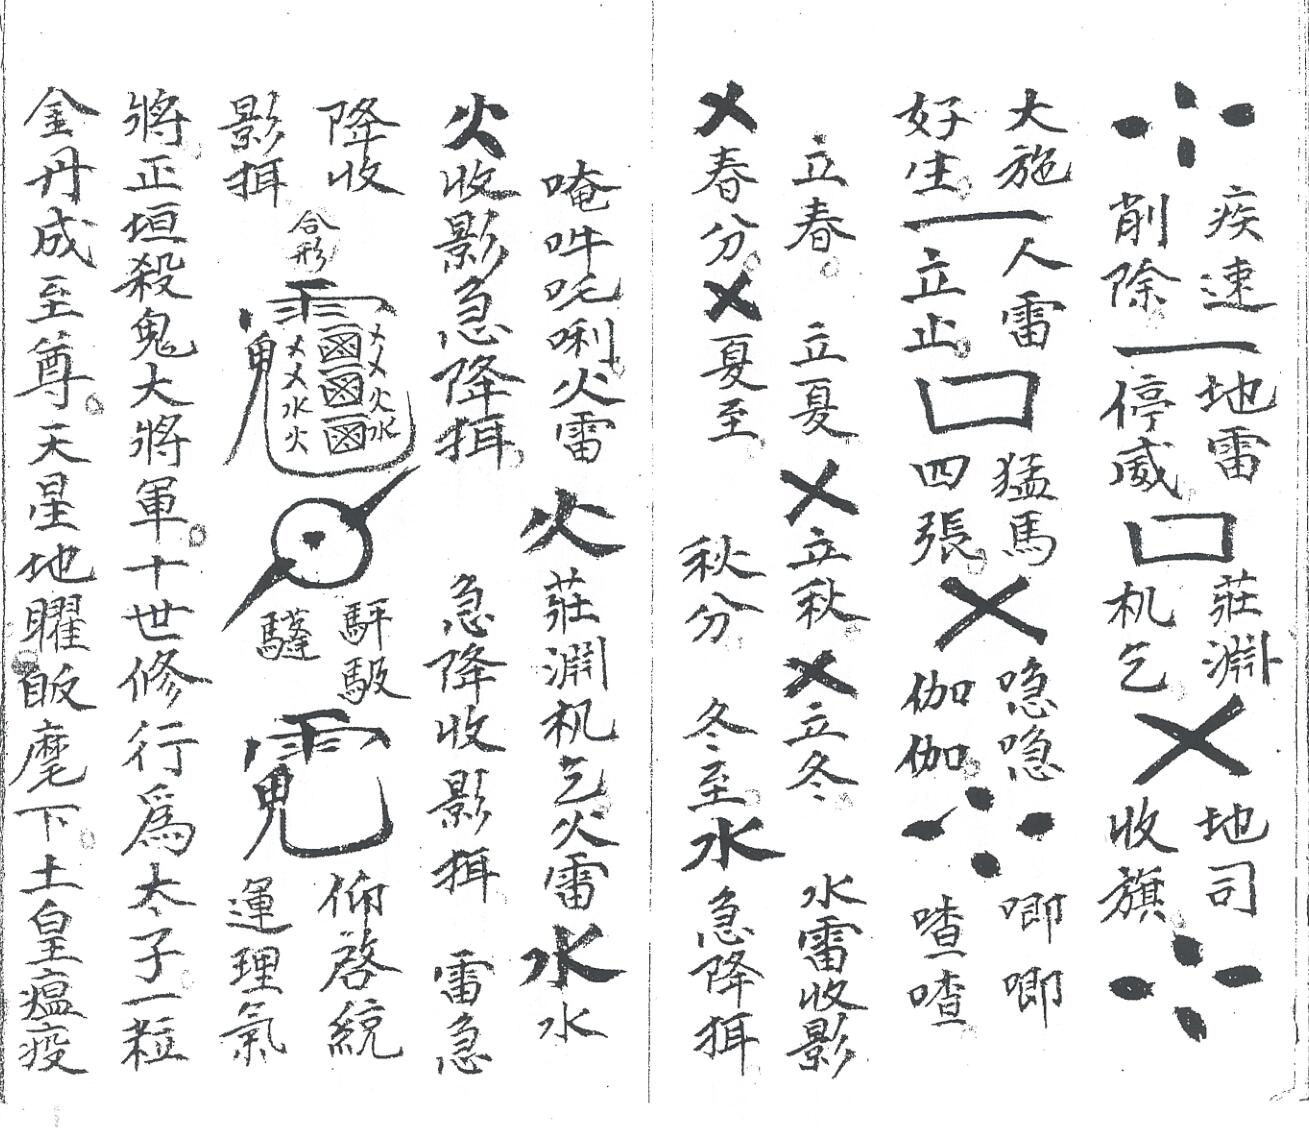 疾速 地雷 莊淵 地司
削除 停威 机乞 收旗
大施 人雷 猛馬 隐隐 唧唧
好生 立止 四張 伽伽 喳喳
立春 立夏 立秋 立冬 水雷收影
春分 夏至 秋分 冬至 水 急降挕
唵吽吒唎火雷 火 莊淵机乞火雷 水 水
火 收影急降挕 急降收影挕 雷急
降收
影挕
合形
仰啓統
運理氣
將正垣殺鬼大將軍十世修行爲太子一粒
金丹成至尊天星地曜皈麾下土皇瘟疫